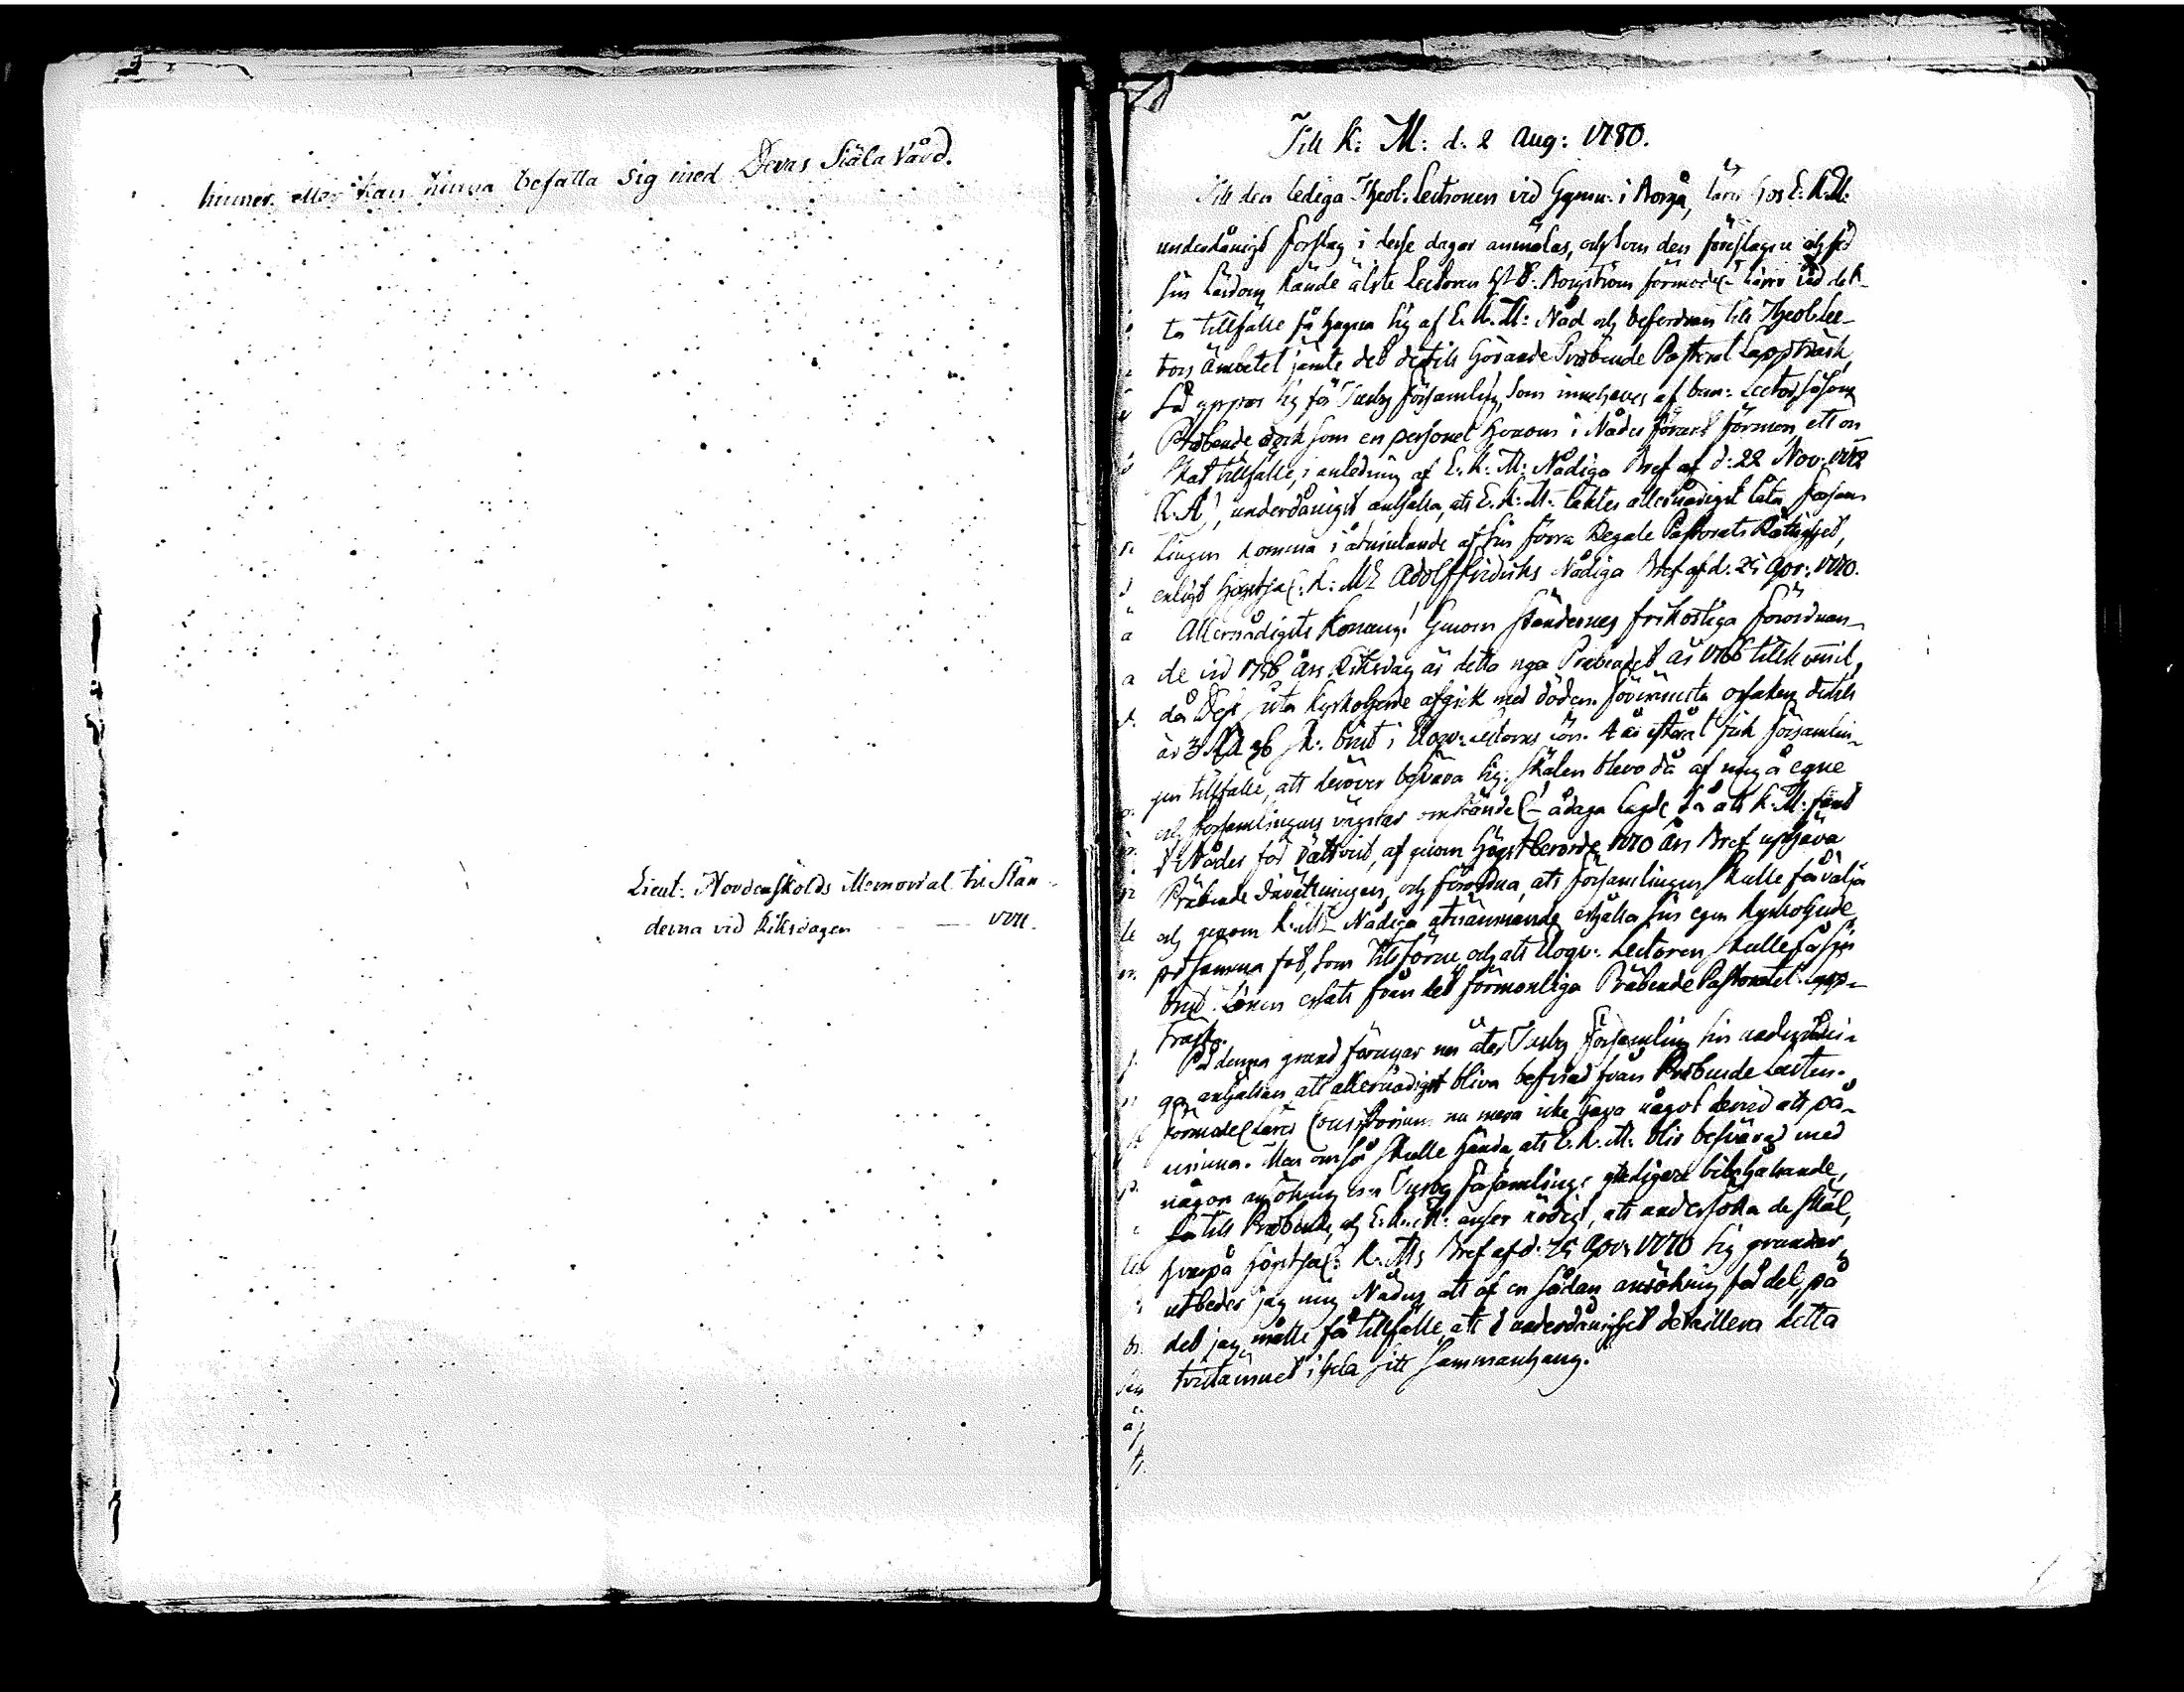 hinner eller kan hinna befatta sig med Deras Siäla Vård.
Lieut: Nordenskölds Memorial til Stän-
derna vid Riksdagen — 1771.
Till K: M: d. 2 Aug: 1780.
Till den lediga Theol: Lectionen vid Gymn: i Borgå, lärer hos E: K: M:
underdånigt förslag i desse dagar anmälas, och som den föreslagne och för
sin lärdom kände älste Lectoren Borgström lärer vid det-
ta tillfälle få hugna sig af E. K. M: Nåd och befordran till Theol: Lec-
tors ämbetet jämte det dertill hörande Præbende Pastorat Lappträsk,
Så yppas sig för Tusby församling, som innehaves af bem: Lector såsom
Præbende, och som en personel honom i Nåder förunt förmon, ett ön-
skat tillfälle, i anledning af E. K: M: Nådiga Bref af d: 22 Nov: 1772
underdånigst anhålla, att E. K: M: täktes allernådigst låta försam-
lingen komma i åtniutande af sin förra Regale Pastorats Rättighet,
enligt Högstsal: K: Mts Adolf Fridrichs Nådiga Bref af d. 25 Apr: 1770.
Allernådigste Konung! Genom Ständernes frikostiga förordnan-
de vid 1756 års Riksdag är detta nya Præbendet år 1766 tillkommit,
då Dess sista Kyrkoherde afgick med döden. förnämsta orsaken dertill
är 3 36 brist i Eloqv: Lectorns lön. 4 år efteråt fick församlin-
gen tillfälle, att deröver besvära sig. Skälen blevo då af mig å egne
och församlingens vägnar ådaga lagde så att K: M: fant
i Nåder för rättvist, at genom Högstberörde 1770 års Bref uphäva
Præbende Inrättningen, och förordna, att församlingen skulle få välja
och genom K: Mts Nådiga utnämnande erhålla sin egen Kyrkoherde
på samma fot, som tillförne och att Eloqv: Lectoren skulle få sin
brist i Lönen ersatt från det förmonliga Præbende Pastoratet Lapp-
träsk.
På denna grund förnyar nu åter Tusby församling sin underdåni-
ga anhållan, att allernådigst bliva befriad från Præbende Lasten.
lärer Consistorium nu mera icke hava något dervid att på-
minna. Men om så skulle hända, att E. K. M: blir besvärad med
någon ansökning om Tusby församlings ytterligare bibehållande,
för till Præbende, och E: K: M: anser nödigt, att undersöka de skäl,
hvarpå högstsal: K. Mts Bref af d. 25 Apr: 1770 sig grundar,
utbeder jag mig Nåden, att af en sådan ansökning få del, på
det jag måtte få tillfälle, att i underdånighet detaillera detta
tvistämnet i hela sitt sammanhang.